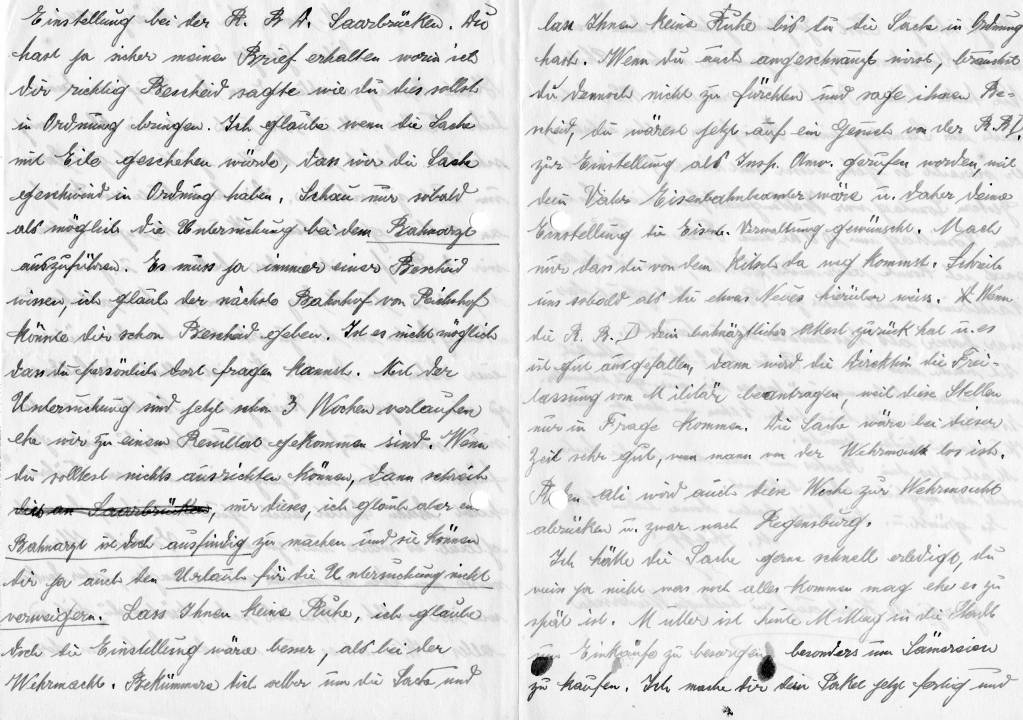 Einstellung bei der R. B. D. Saarbrücken. Du
hast ja sicher meinen Brief erhalten worin ich
dir richtig Bescheid sagte wie du dies sollst
in Ordnung bringen. Ich glaube wenn die Sache
mit Eile geschehen würde, dass wir die Sache
geschwind in Ordnung haben. Schau nur sobald
als möglich die Untersuchung bei dem Bahnarzt
auszuführen. Es muss ja immer einer Bescheid
wissen, ich glaub der nächste Bahnhof von
könnte dir schon Bescheid geben. Ist es nicht möglich
dass du persönlich dort fragen kannst. Mit der
Untersuchung sind jetzt schon 3 Wochen verlaufen
ehe wir zu einem Resultat gekommen sind. Wenn
du solltest nichts ausrichten können, dann schreib
mir dieses, ich glaube aber ein
Bahnarzt ist doch ausfindig zu machen und sie können
dir ja auch den Urlaub für die Untersuchung nicht
verweigern. Lass Ihnen keine Ruhe, ich glaube
doch die Einstellung wäre besser, als bei der
Wehrmacht. Bekümmere dich selber um die Sache und
lass Ihnen keine Ruhe bis du die Sache in Ordnung
hast. Wenn du auch angeschnauzt wirst, brauchst
du dennoch nicht zu fürchten und sage ihnen Be-
scheid, du wärest jetzt auf ein Gesuch von der R.B.D.
zur Einstellung als Insp. Anw. gerufen worden, weil
dein Vater Eisenbahnbeamter wäre u. daher deine
Einstellung die Eisenb. Verwaltung gewünscht. Mach
nur dass du von dem Kitsch da weg kommst. Schreib
uns sobald als du etwas Neues hierüber weiss. Wenn
die R. B. D dein bahnärztlicher Attest zurück hat u. es
ist gut ausgefallen, dann wird die Direktion die Frei-
lassung vom Militär beantragen, weil diese Stellen
nur in Frage kommen. Die Sache wäre bei dieser
Zeit sehr gut, wenn mann von der Wehrmacht los ist.
wird auch diese Woche zur Wehrmacht
abrücken u. zwar nach Regensburg.
Ich hätte die Sache gerne schnell erledigt, du
weiss ja nicht was noch alles kommen mag ehe es zu
spät ist. Mutter ist heute Mittag in die Stadt
um Einkäufe zu besorgen besonders um Sämereien
zu kaufen. Ich mache dir dein Paket jetzt fertig und